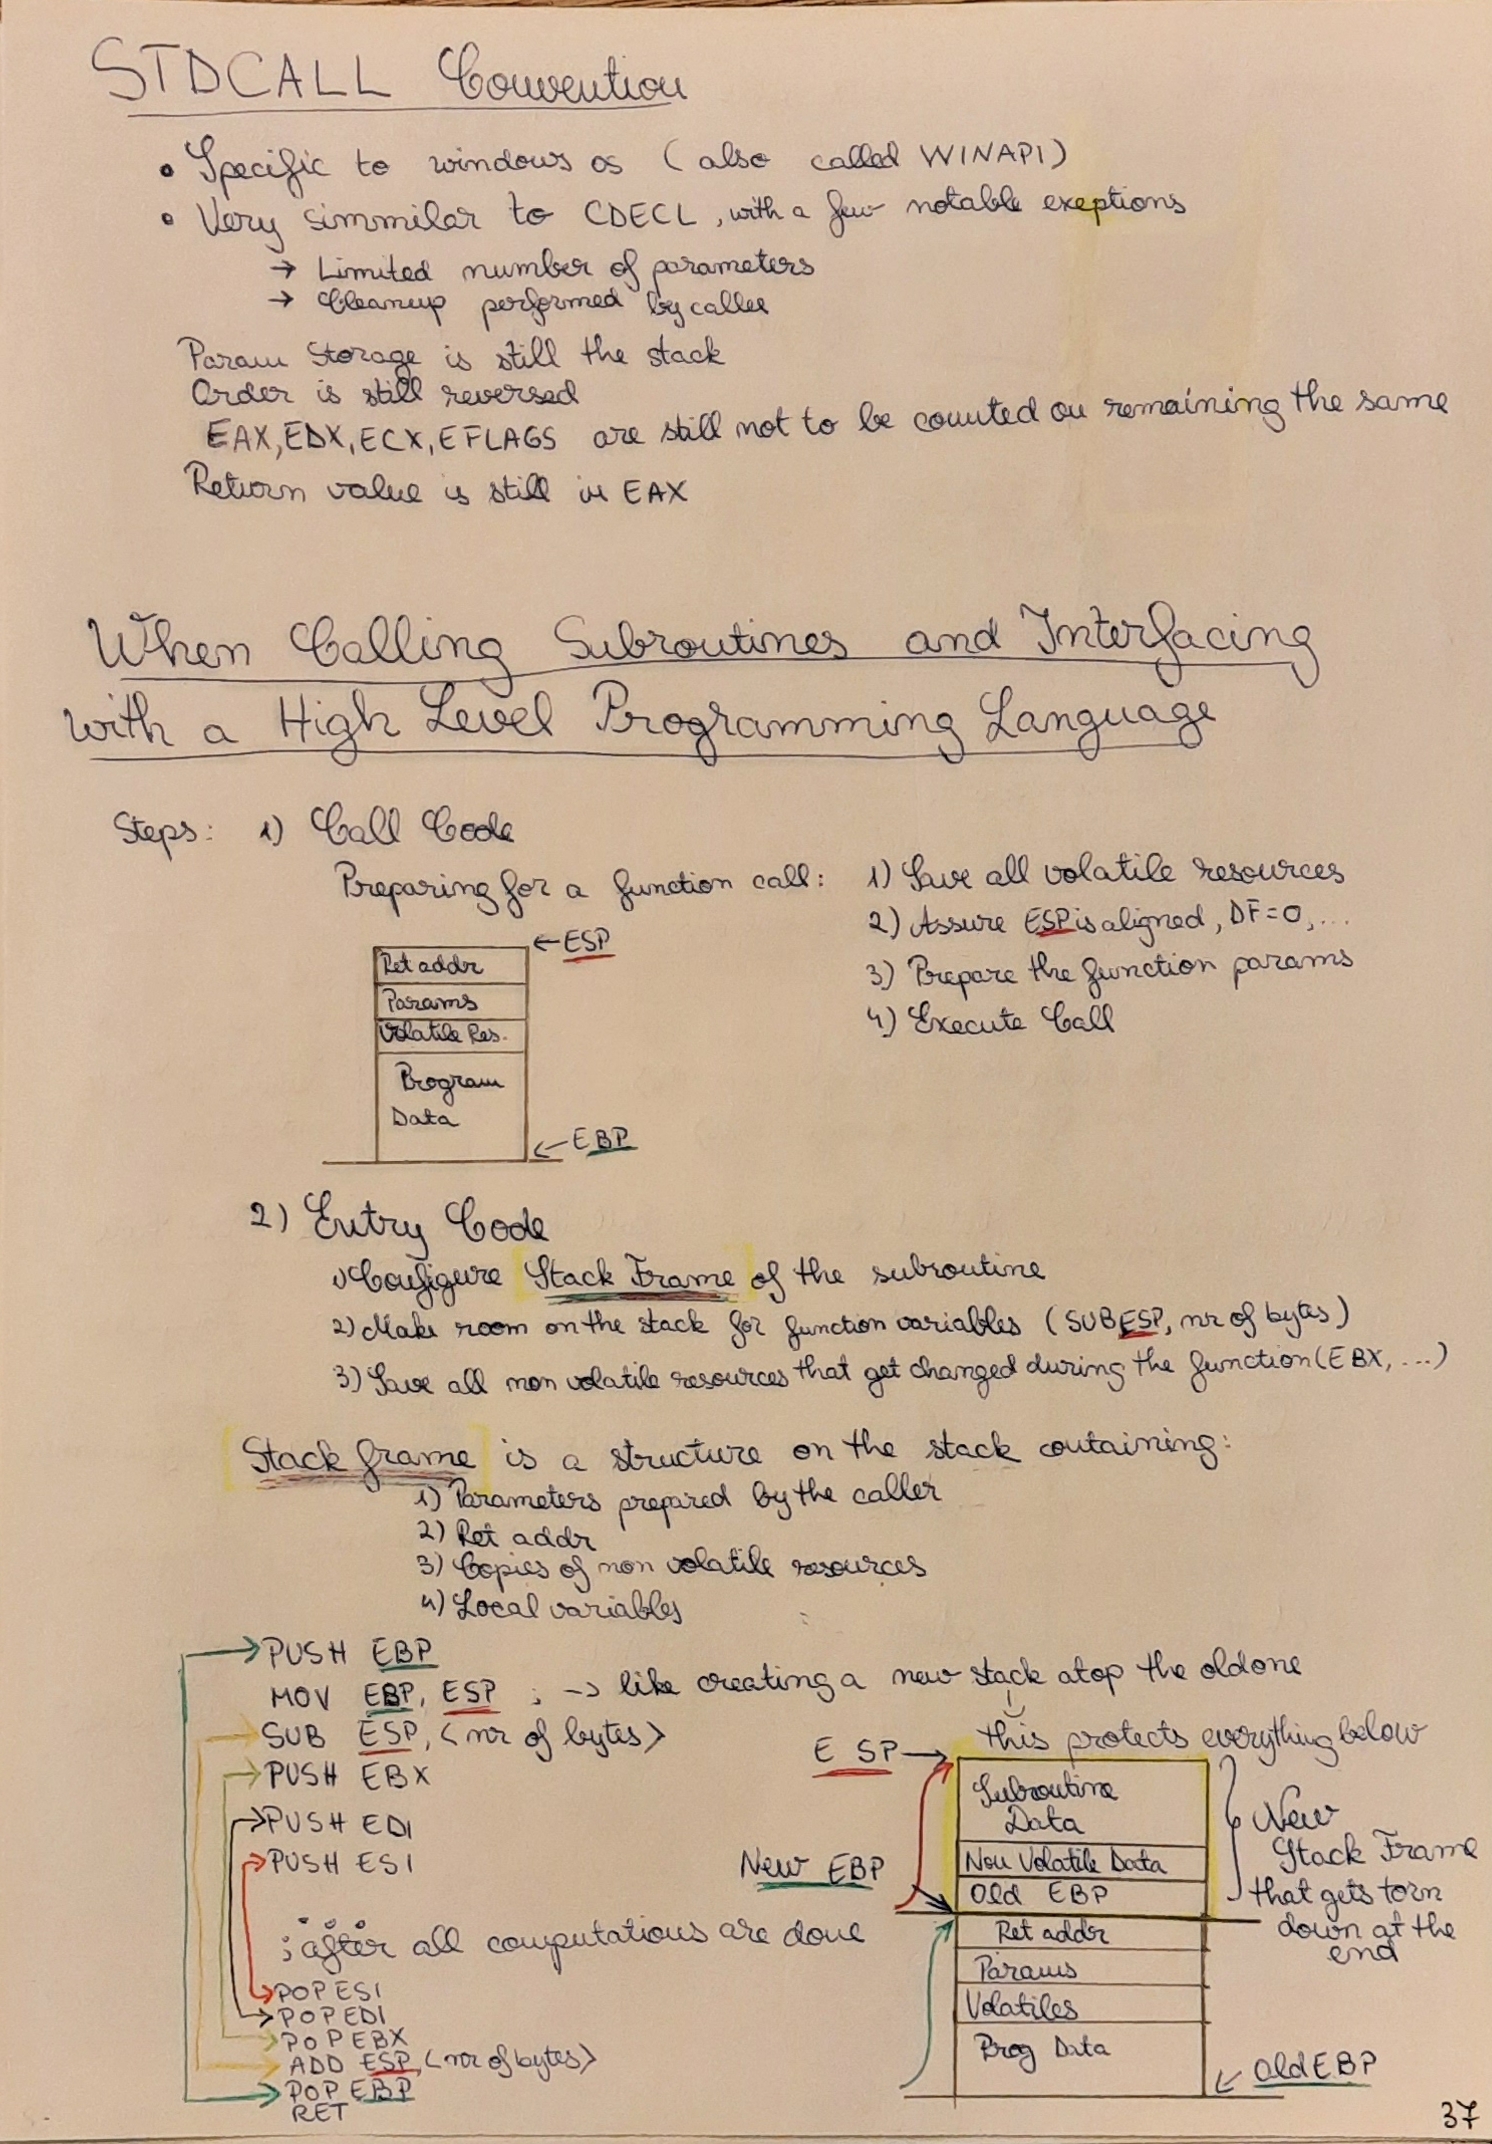 STDCALL Convention
• Specific to windows os (also called WINAPI)
• Very simmilar to CDECL, with a few notable exeptions
→ Limited number of parameters
→ Cleanup performed by callee
Param Storage is still the stack
Order is still reversed
EAX, EDX, ECX, EFLAGS are still not to be counted on remaining the same
Return value is still in EAX
When Calling Subroutines and Interfacing
with a High Level Programming Language
Steps: 1) Call Code
Preparing for a function call: 1) Save all volatile resources
2) Assure ESP is aligned, DF=0, ...
3) Prepare the function params
4) Execute Call
←ESP
Ret addr
Params
Volatile Res.
Program
Data
←EBP
2) Entry Code
1) Configure [Stack Frame] of the subroutine
2) Make room on the stack for function variables (SUB ESP, nr of bytes)
3) Save all non volatile resources that get changed during the function (EBX, ...)
[Stack frame] is a structure on the stack containing:
1) Parameters prepared by the caller
2) Ret addr
3) Copies of non volatile resources
4) Local variables
PUSH EBP
MOV EBP, ESP ; -> like creating a new stack atop the old one
SUB ESP, <nr of bytes>
PUSH EBX
PUSH EDI
PUSH ESI
...
; after all computations are done
POP ESI
POP EDI
POP EBX
ADD ESP, <nr of bytes>
POP EBP
RET
this protects everything below
ESP→
Subroutine
Data
Non Volatile Data
New EBP
Old EBP
Ret addr
Params
Volatiles
Prog Data
New
Stack Frame
that gets torn
down at the
end
← Old EBP
37